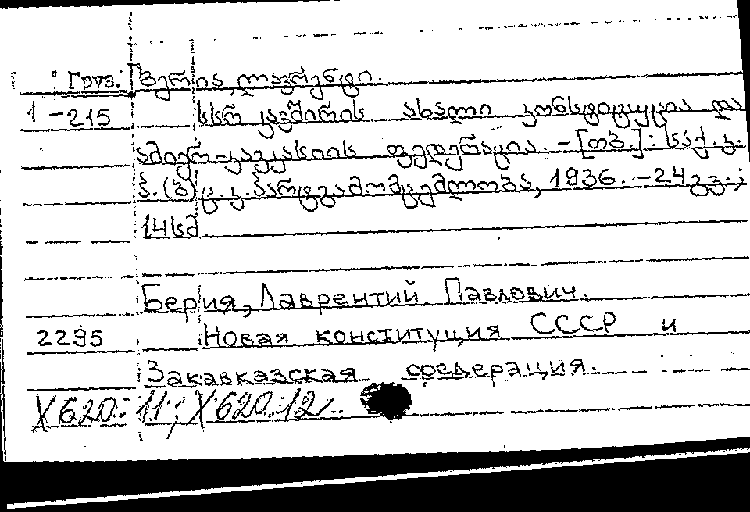 Груз. ბერია, ლავრენტი.
1-215 სსრ კავშირის ახალი კონსტიტუცია და
ამიერ-კავკასიის ფედერაცია. - [თბ.] : საქ. კ.
პ. (ბ) ც. კ. პარტგამომცემლობა, 1936. - 24 გვ. ;
14 სმ
Берия, Лаврентий Павлович.
2295 Новая конституция СССР и
Закавказская федерация.
X620.11; X620.12